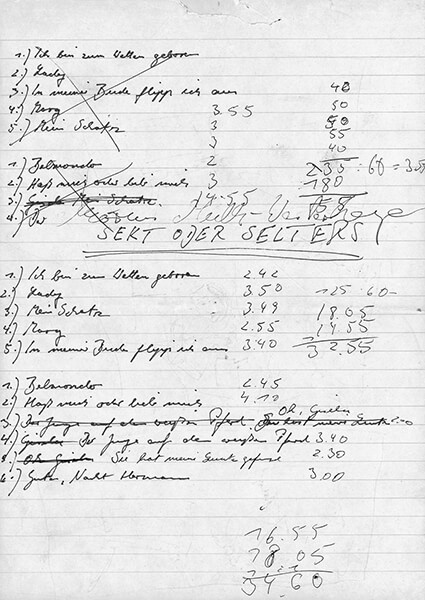 1.) Ich bin zum Wetten geboren
2.) Lady 40
3.) In meiner Bude flippt ich aus 50
4.) Margy 3.55 50
5.) Mein Schatz 3 55
3 40
1.) Belmondo 2 235 : 60 = 3.55
2.) Haß mich oder lieb mich 3 180
3.) Mein Schatz. 14.55 55
4.) Der
SEKT ODER SELTERS
1.) Ich bin zum Wetten geboren 2.42
2.) Lady 3.50 125 : 60 -
3.) Mein Schatz 3.49 18.05
4.) Margy 2.55 14.55
5.) In meiner Bude flippt ich aus 3.40 32.55
1.) Belmondo 2.45
2.) Haß mich oder lieb mich 4.10
Oh,
3.) Der Junge auf dem weißen Pferd 2.00
4.) Der Junge auf dem weißen Pferd 3.40
5.) Sie hat mein gepfos 2.30
6.) Gute Nacht Hermann 3.00
16.55
18.05
34.60